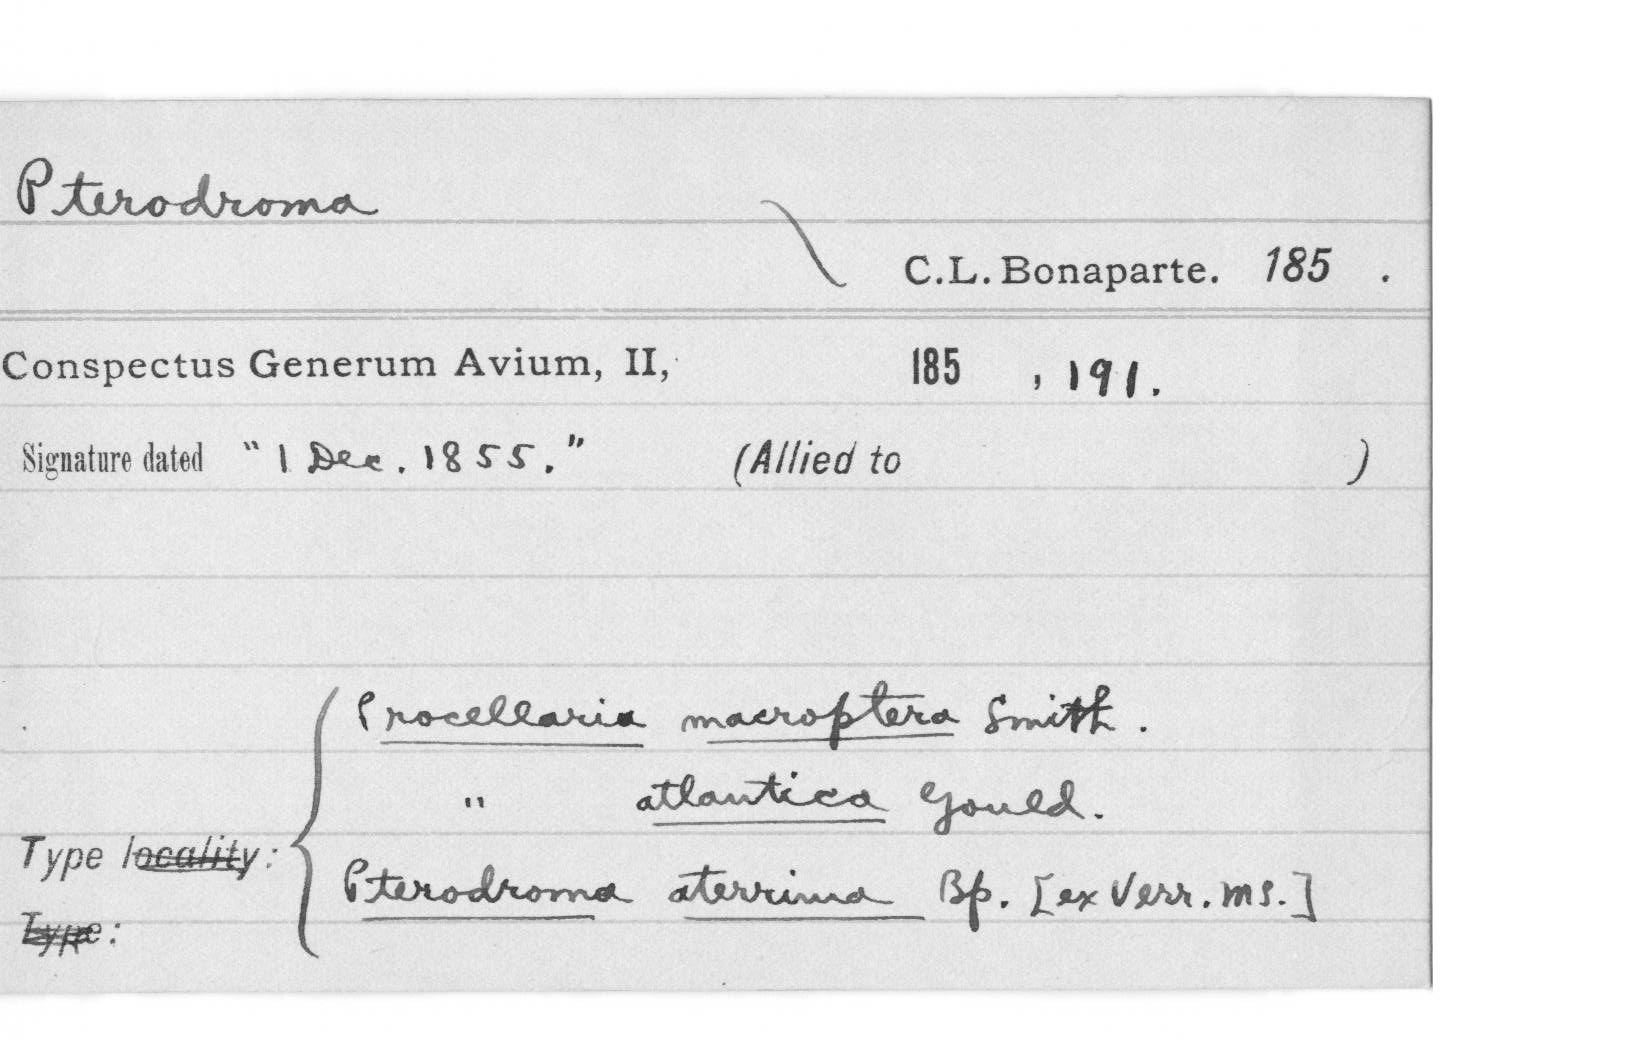 Pterodroma
C.L. Bonaparte. 185 .
Conspectus Generum Avium, II, 185 , 191.
Signature dated "1 Dec. 1855." (Allied to )
Procellaria macroptera Smith.
" atlantica Gould.
Type locality:
Pterodroma aterrima Bp. [ex Verr. ms.]
Type: